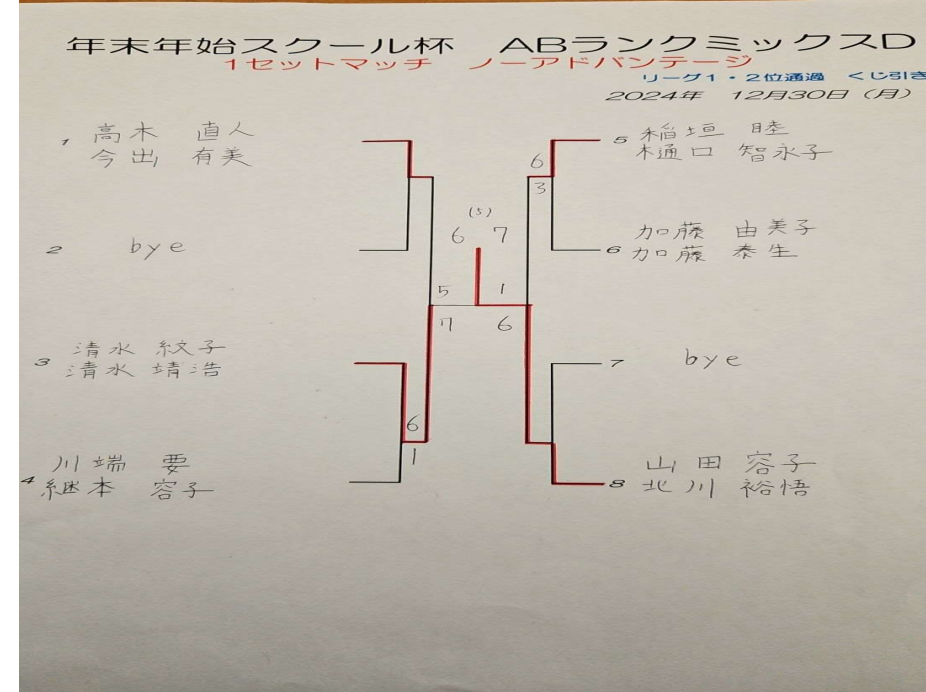 年末年始スクール杯　ABランクミックスD
1セットマッチ　ノーアドバンテージ
リーグ1・2位通過　くじ引き
2024年　12月30日（月）
1 高木　直人
今出　有美
2 bye
3 清水　紋子
清水　靖浩
4 川端　要
継本　容子
5 稲垣　睦
樋口　智永子
6 加藤　由美子
加藤　泰生
7 bye
8 山田　容子
北川　裕悟
6
3
(5)
6 7
5 1
7 6
6
1